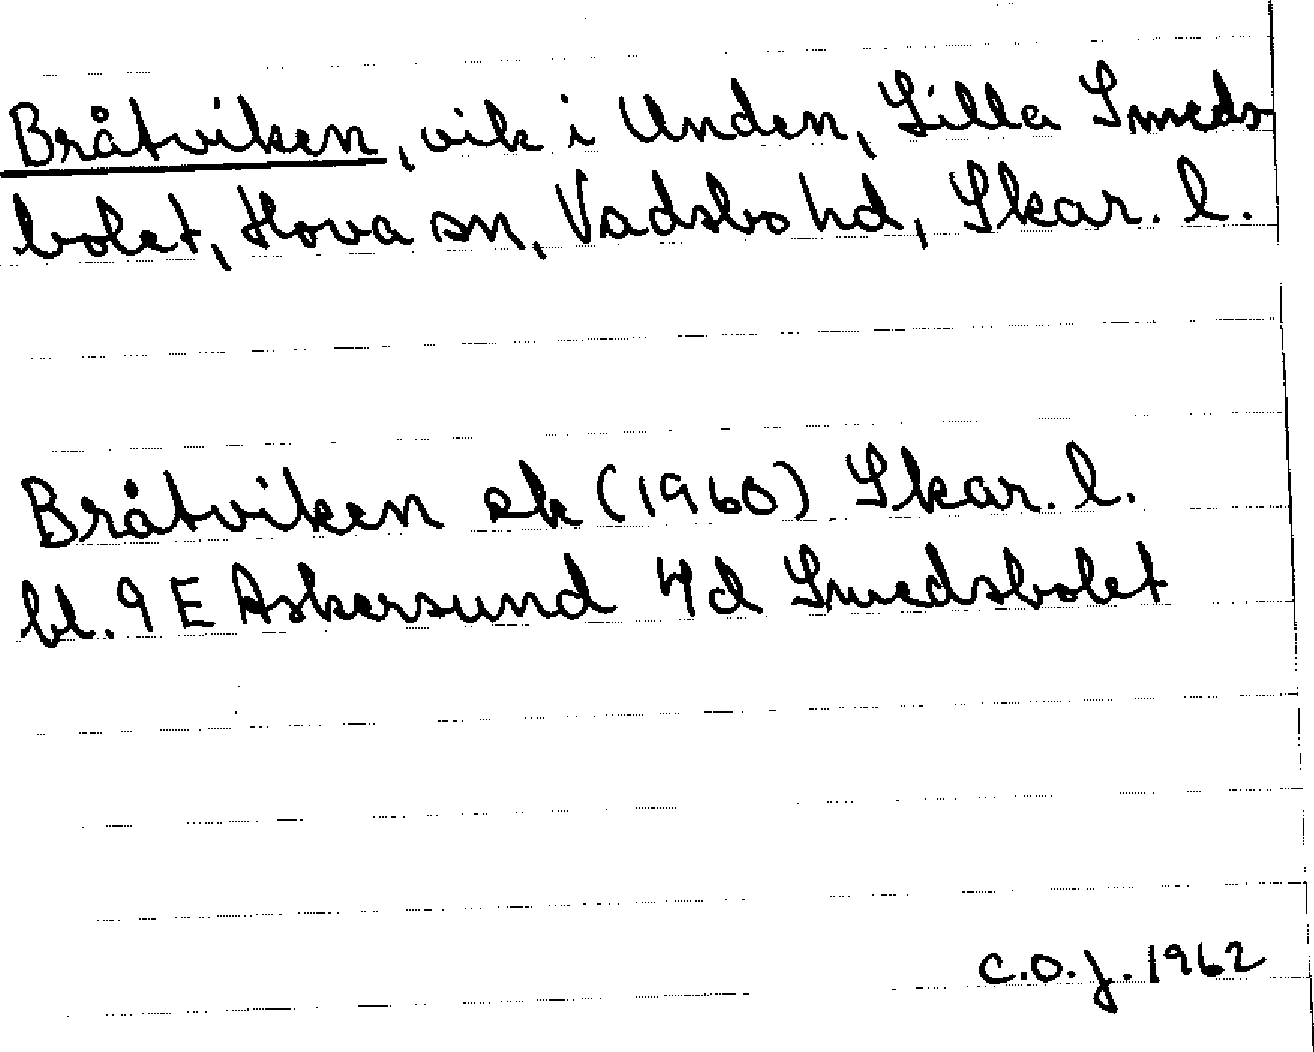 Bråtviken, vik i Unden, Lilla Smeds
bolet, Hova sn, Vadsbo hd, Skar. l.
Bråtviken ek (1960) Skar. l.
bl. 9 E Askersund 4d Smedsbolet
C.O.J. 1962